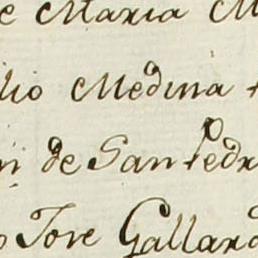 e Maria M
lio Medina
n de San Pedr
Jose Gallard